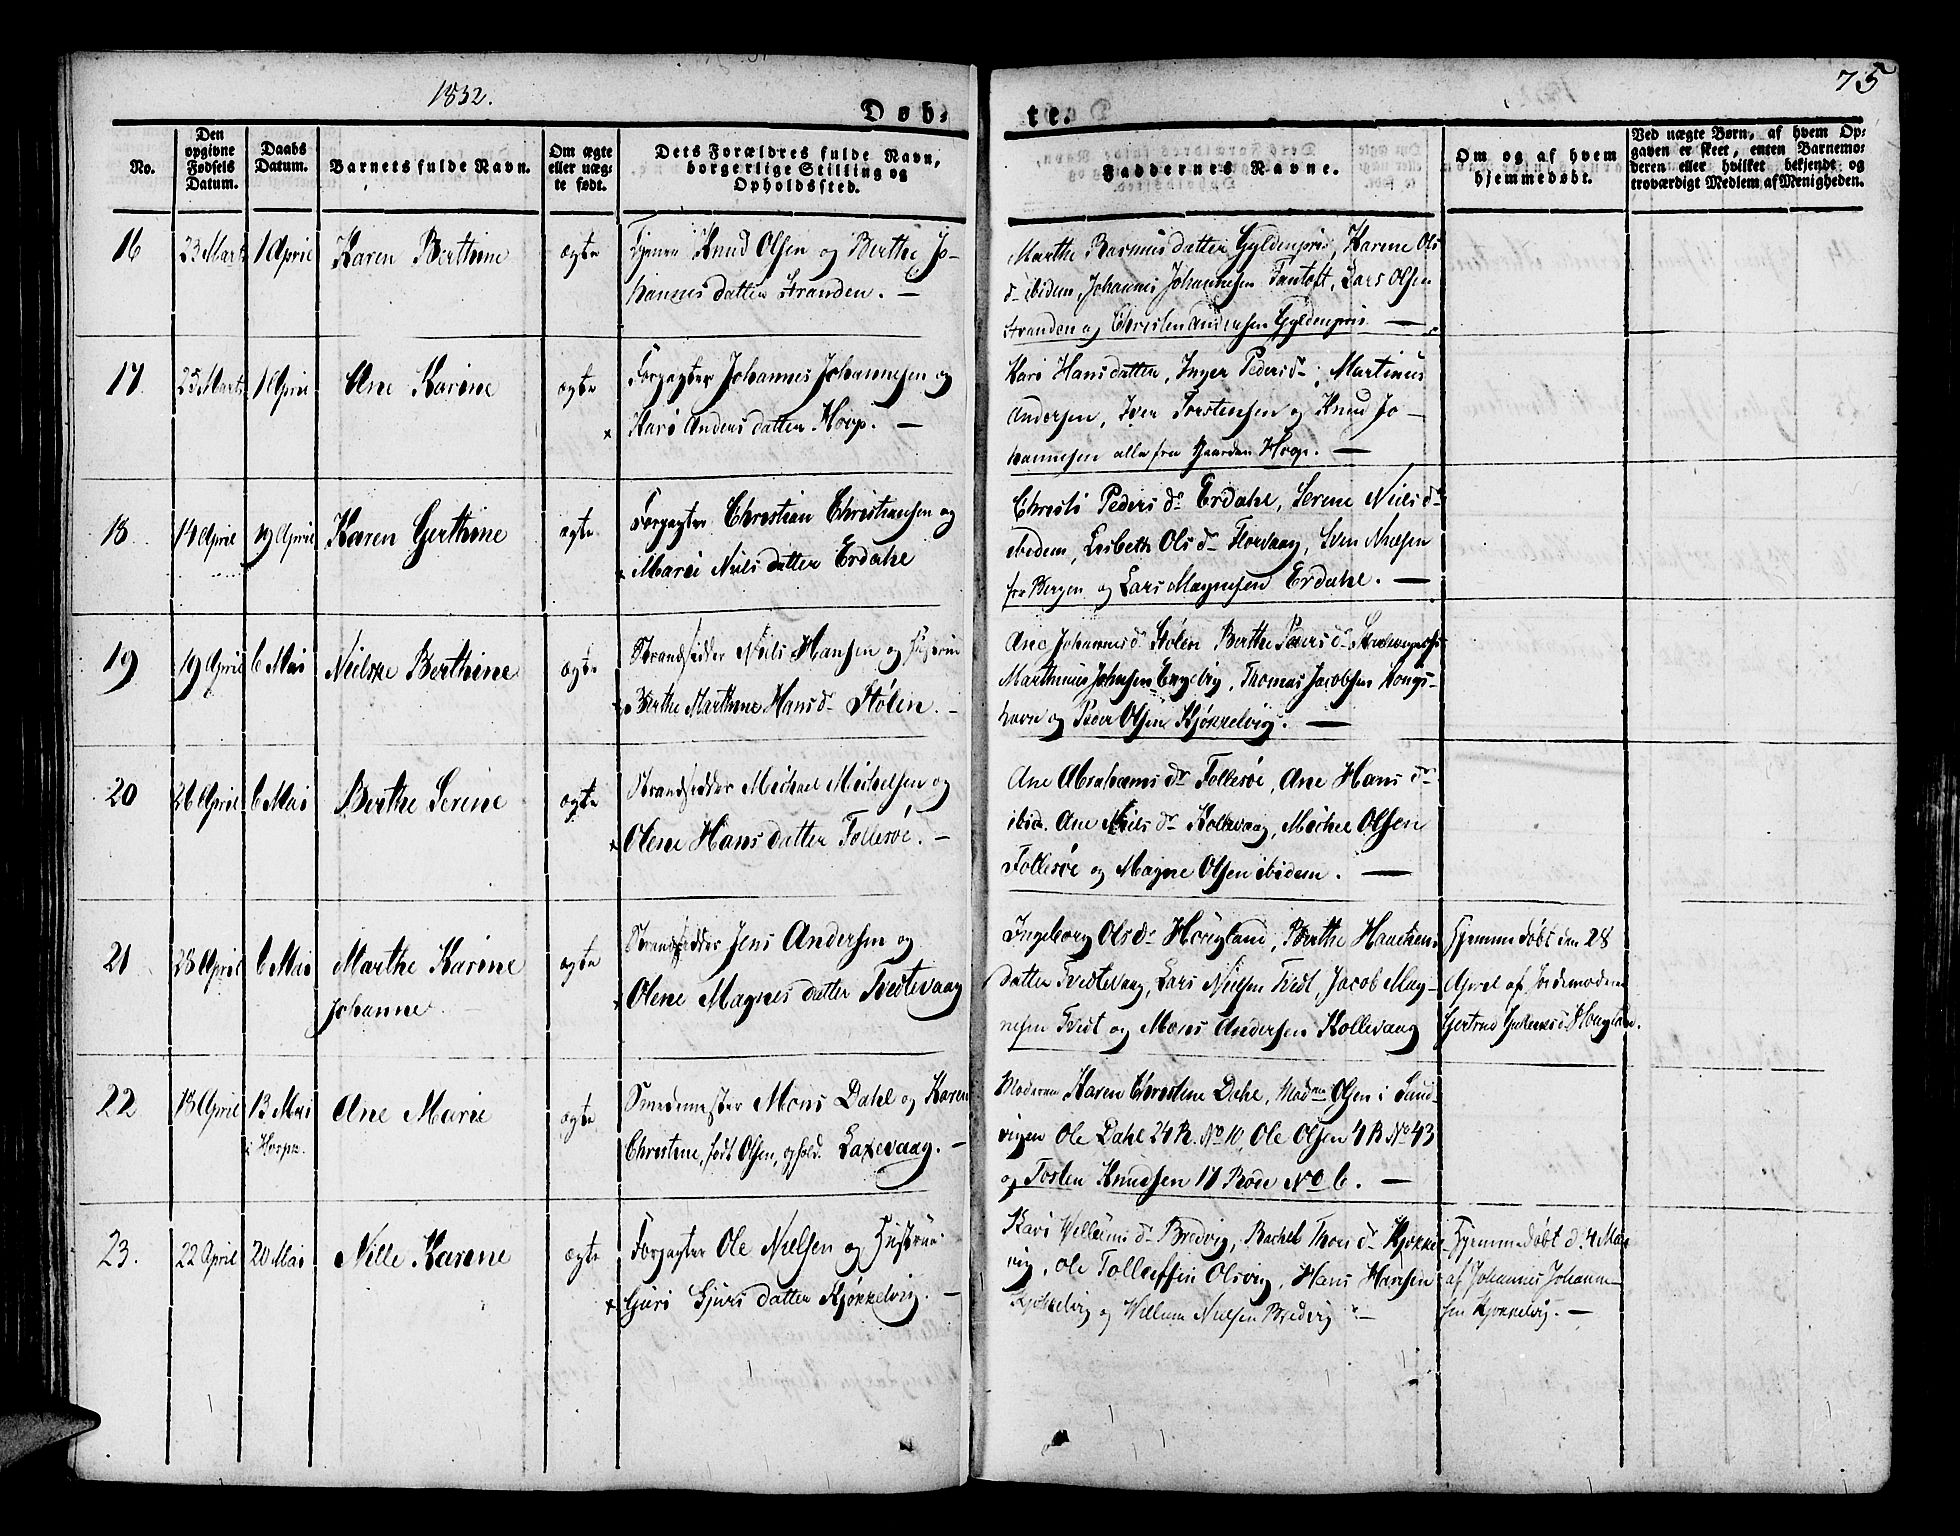 1832.
75
Døb-
te.
No.
Den opgivne Fødsels Datum.
Daabs Datum.
Barnets fulde Navn.
Om ægte eller uæg-te født.
Dets Forældres fulde Navn, borgerlige Stilling og Opholdssted.
Faddernes Navne.
Om og af hvem hjemmedøbt.
Ved uægte Børn, af hvem Op-gaven er skeet, enten Barnemo-deren eller hvilket bekjendt og troværdigt Medlem af Menigheden.
16
23 Marts
1 April
Karen Berthine
ægte
Knud Olsen og Berthe Jo-
hannes datter Stranden. —
Marthe Rasmus datter Gyldenpris, Karene Ols
dr ibidem, Johannes Johannesen Fantoft, Lars Olsen
Stranden og Christen Andersen Gyldenpris —
17.
25 Marts
1 April
Ane Karine
ægte
Forpagter Johannes Johannesen og
x Kari Anders datter Hoop. —
Kari Hansdatter, Inger Peders dr, Martinus
Andersen, Iver Torstensen og Knud Jo-
hannesen alle fra Gaarden Hoop. —
18.
14 April
19 April
Karen Gerthine
ægte
Forpagter Christian Christiansen og
x Mari Niels datter Erdahl
Christi Peders dr Erdahl, Serene Niels dr
ibidem, Lisbeth Ols dr Florvaag, Sven Nielsen
fra Bergen og Lars Magnesen Erdahl. —
19
19 April
6 Mai
Nielske Berthine
ægte
Strandsidder Niels Hansen og Hustrue
x Berthe Marthine Hans dr Stølen. —
Ane Johannes dr Stølen Berthe Peders dr
Marthinus Johnsen Engevig, Thomas Jacobsen Kongs-
havn og Peder Olsen Kjøkkelvig. —
20
26 April
6 Mai
Berthe Serine
ægte
Strandsidder Michael Michelsen og
x Olene Hans datter Follesøe. —
Ane Abrahams dr Follesøe, Ane Hans dr
ibid. Ane Niels dr Kollevaag, Michel Olsen
Follesøe og Magne Olsen ibidem. —
21
28 April
6 Mai
Marthe Karine
Johanne
ægte
Strandsidder Jens Andersen og
x Olene Magnes datter Tvedtevaag
Ingeborg Ols dr Høugland, Berthe Haachens
datter Tvedtevaag, Lars Nielsen Tvedt, Jacob Mag-
nesen Tvedt og Mons Andersen Kollevaag
Hjemmedøbt den 28
April af Jordemoderen
Gertrud dr Hougland.
22
13 April
13 Mai
i Kirken.
Ane Marie
ægte
Smedmester Mons Dahl og Karen
Christine, født Olsen, ophold. Laxevaag. —
Moderen Karen Christine Dahl, Madme Olsen i Sand-
vigen Ole Dahl 24 R. No 10, Ole Olsen 4 R No 43
og Tosten Knudsen 17 Rode No 6. —
23.
22 April
20 Mai
Nille Karine
ægte
Forpagter Ole Nielsen og Hustrue
x Guri Sjurs datter Kjøkkelvig. —
Kari Willums dr Bredvig, Rachel Thors dr Kjøkkel-
vig, Ole Tollefsen Olsvig, Hans Hansen
Kjøkkelvig og Willum Nielsen Bredvig —
Hjemmedøbt d. 4 Mai
af Johannes Johanne-
sen Kjøkkelvig. —